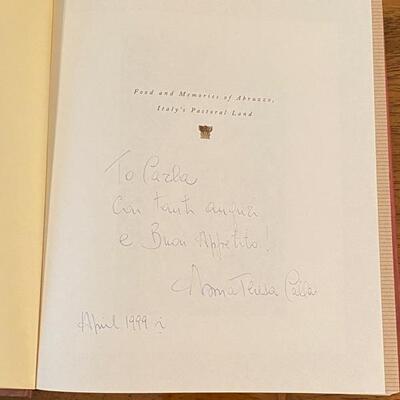 Food and Memories of Abruzzo,
Italy's Pastoral Land
To Carla
Con tanti auguri
e Buon Appetito!
Anna Teresa Callen
April 1999